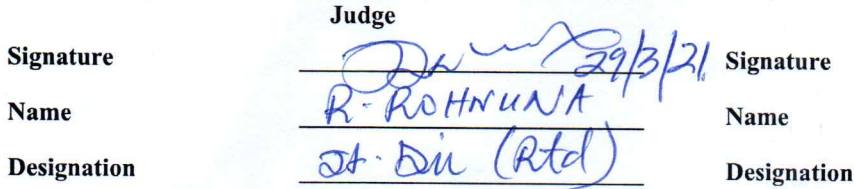 Judge
Signature 29/3/21. Signature
Name R. ROHNUNA Name
Designation Jt. Dir (Rtd) Designation